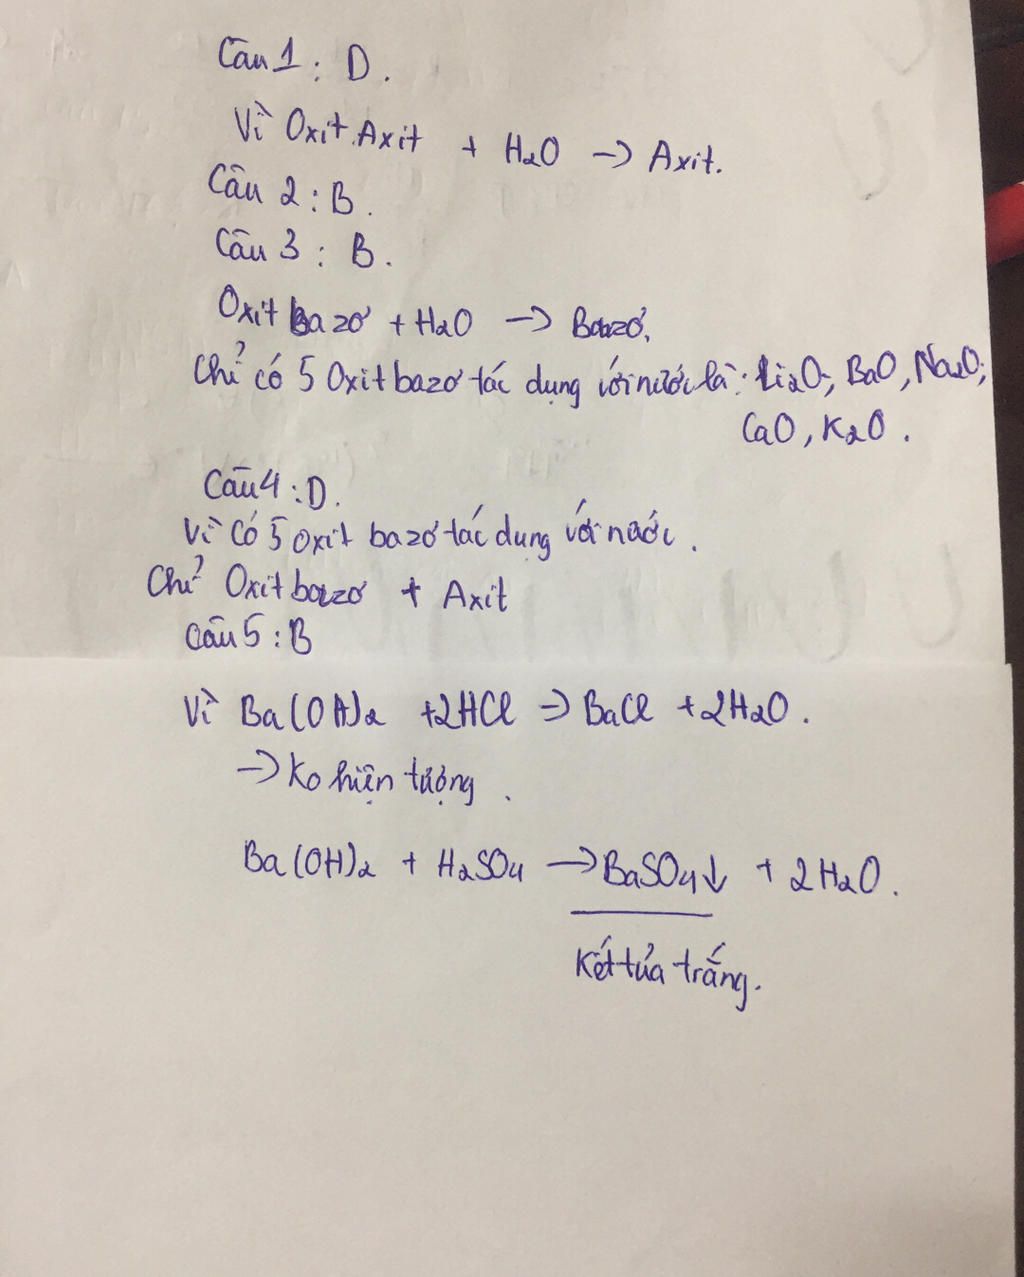 Câu 1 : D.
Vì Oxit Axit + H2O -> Axit.
Câu 2 : B.
Câu 3 : B.
Oxit bazơ + H2O -> Bazơ.
Chỉ có 5 Oxit bazơ tác dụng với nước là: Li2O, BaO, Na2O;
CaO, K2O.
Câu 4 : D.
Vì có 5 Oxit bazơ tác dụng với nước.
Chỉ Oxit bazơ + Axit
Câu 5 : B
Vì Ba(OH)2 + 2HCl -> BaCl + 2H2O.
-> Ko hiện tượng.
Ba(OH)2 + H2SO4 -> BaSO4↓ + 2H2O.
Kết tủa trắng.